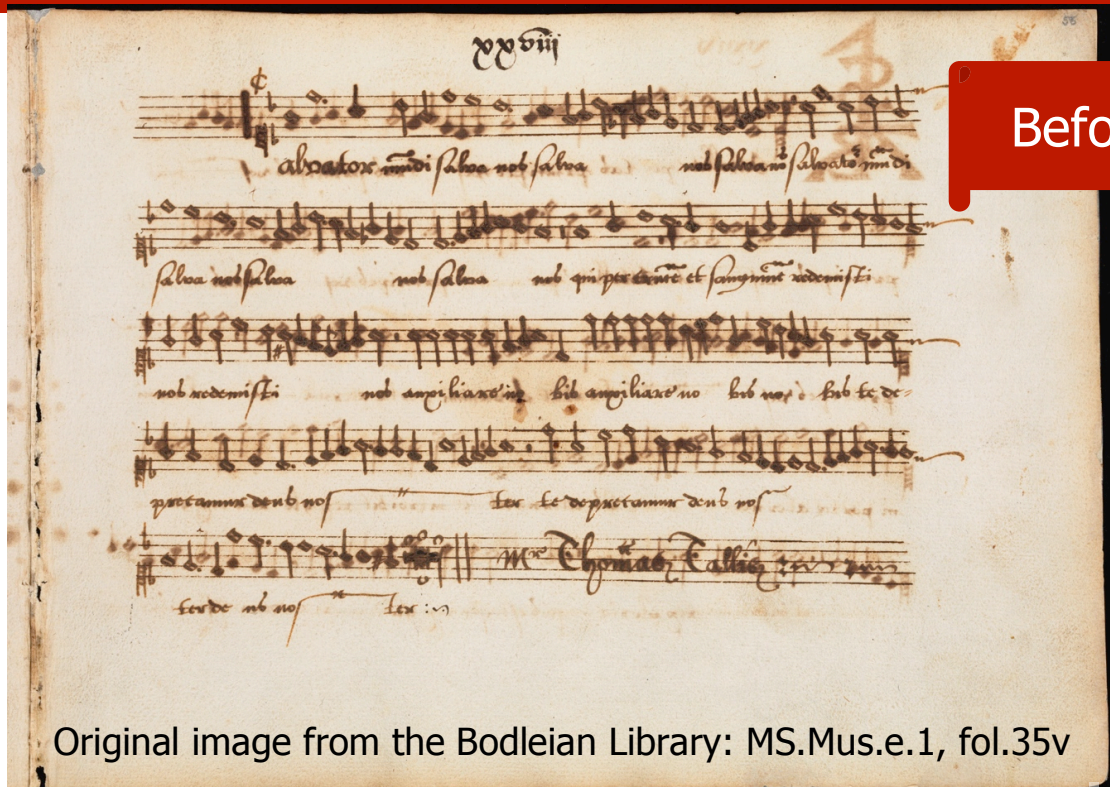 55
xxviii
Befo
alvator mūdi salva nos salva nos salva nos salvator mūdi
salva nos salva nos salva nos qui per crucē et sanguinē redemisti
nos redemisti nos auxiliare no bis auxiliare no bis no bis te de-
precamur deus nos ter te deprecamur deus nos
Mr Thomas Tallis
ter de us nos ter
Original image from the Bodleian Library: MS.Mus.e.1, fol.35v